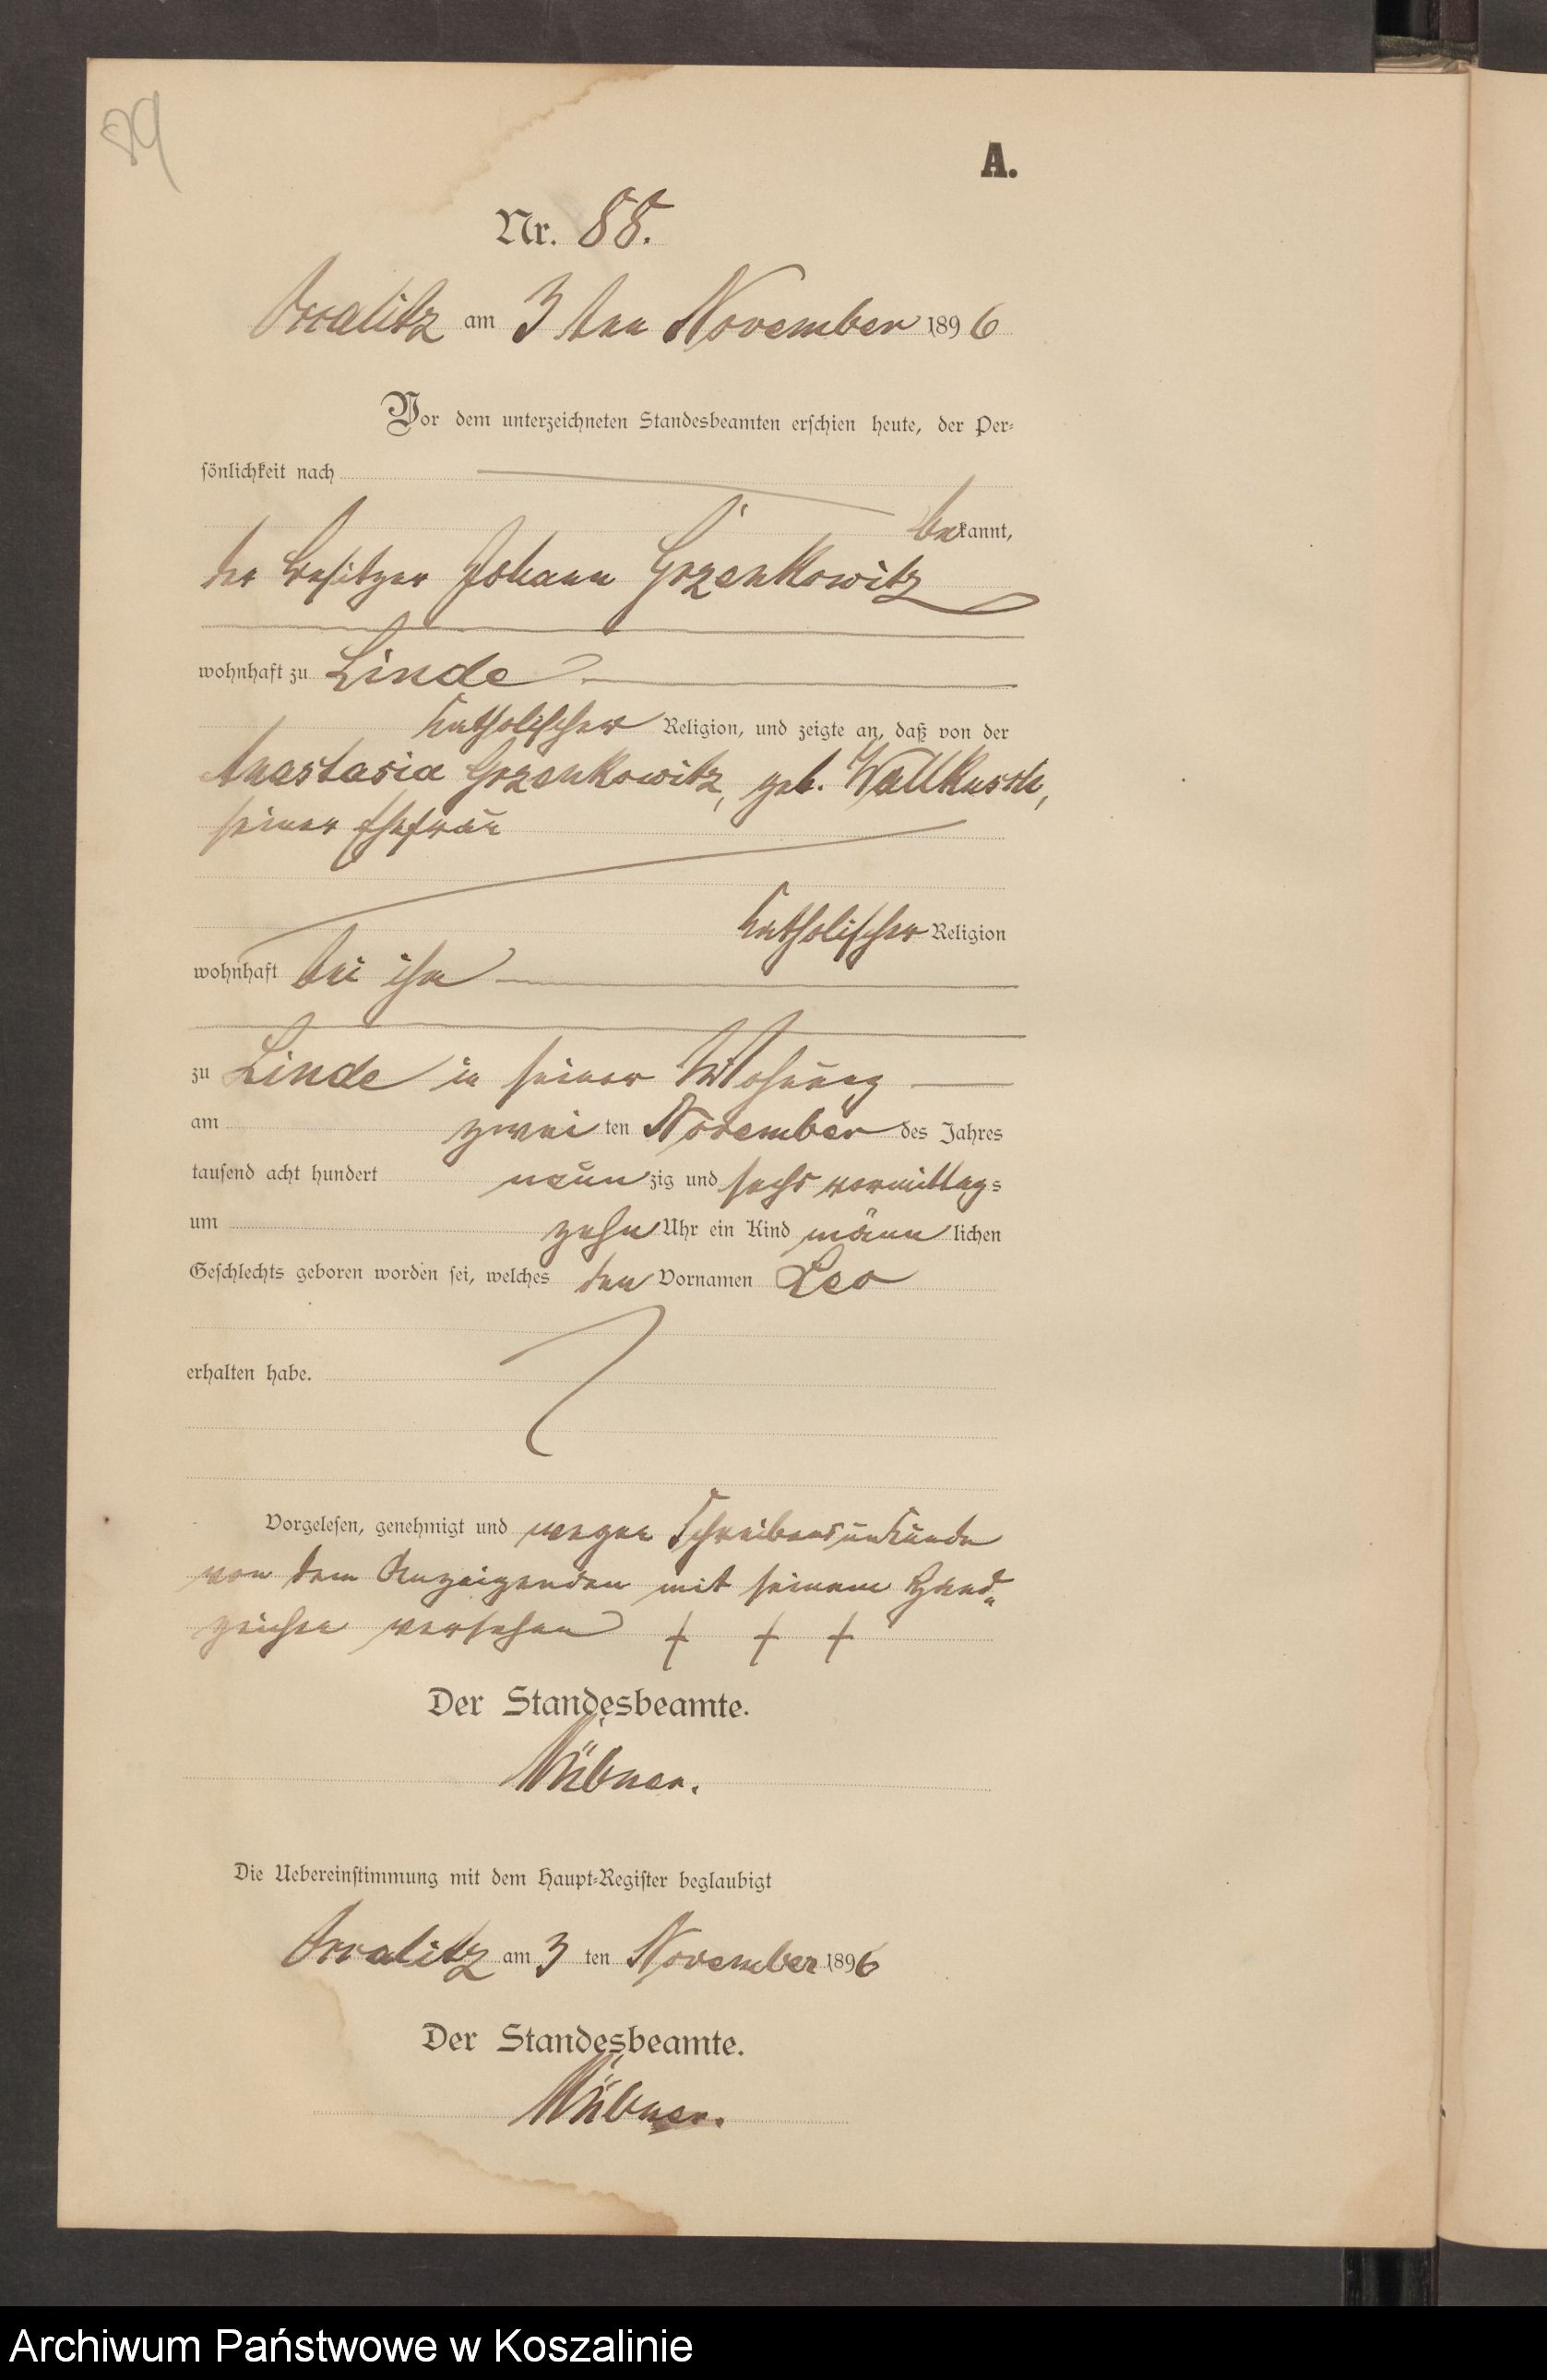 89
A.
Nr. 88.
am 3 ten November 1896
Vor dem unterzeichneten Standesbeamten erschien heute, der Per-
sönlichkeit nach
bekannt,
der Besitzer Johann Grzenkowitz
wohnhaft zu Linde
katholischer Religion, und zeigte an, daß von der
Anastasia Grzenkowitz, geb.
seiner Ehefrau
katholischer Religion
wohnhaft bei ihm
zu Linde in seiner Wohnung
am zwei ten November des Jahres
tausend acht hundert neun zig und sechs vormittags
um zehn Uhr ein Kind männ lichen
Geschlechts geboren worden sei, welches den Vornamen Leo
erhalten habe.
Vorgelesen, genehmigt und wegen Schreibensunkunde
von dem Anzeigenden mit seinem Hand„
zeichen versehen + + +
Der Standesbeamte.
Die Uebereinstimmung mit dem Haupt-Register beglaubigt
am 3 ten November 1896
Der Standesbeamte.
Archiwum Państwowe w Koszalinie